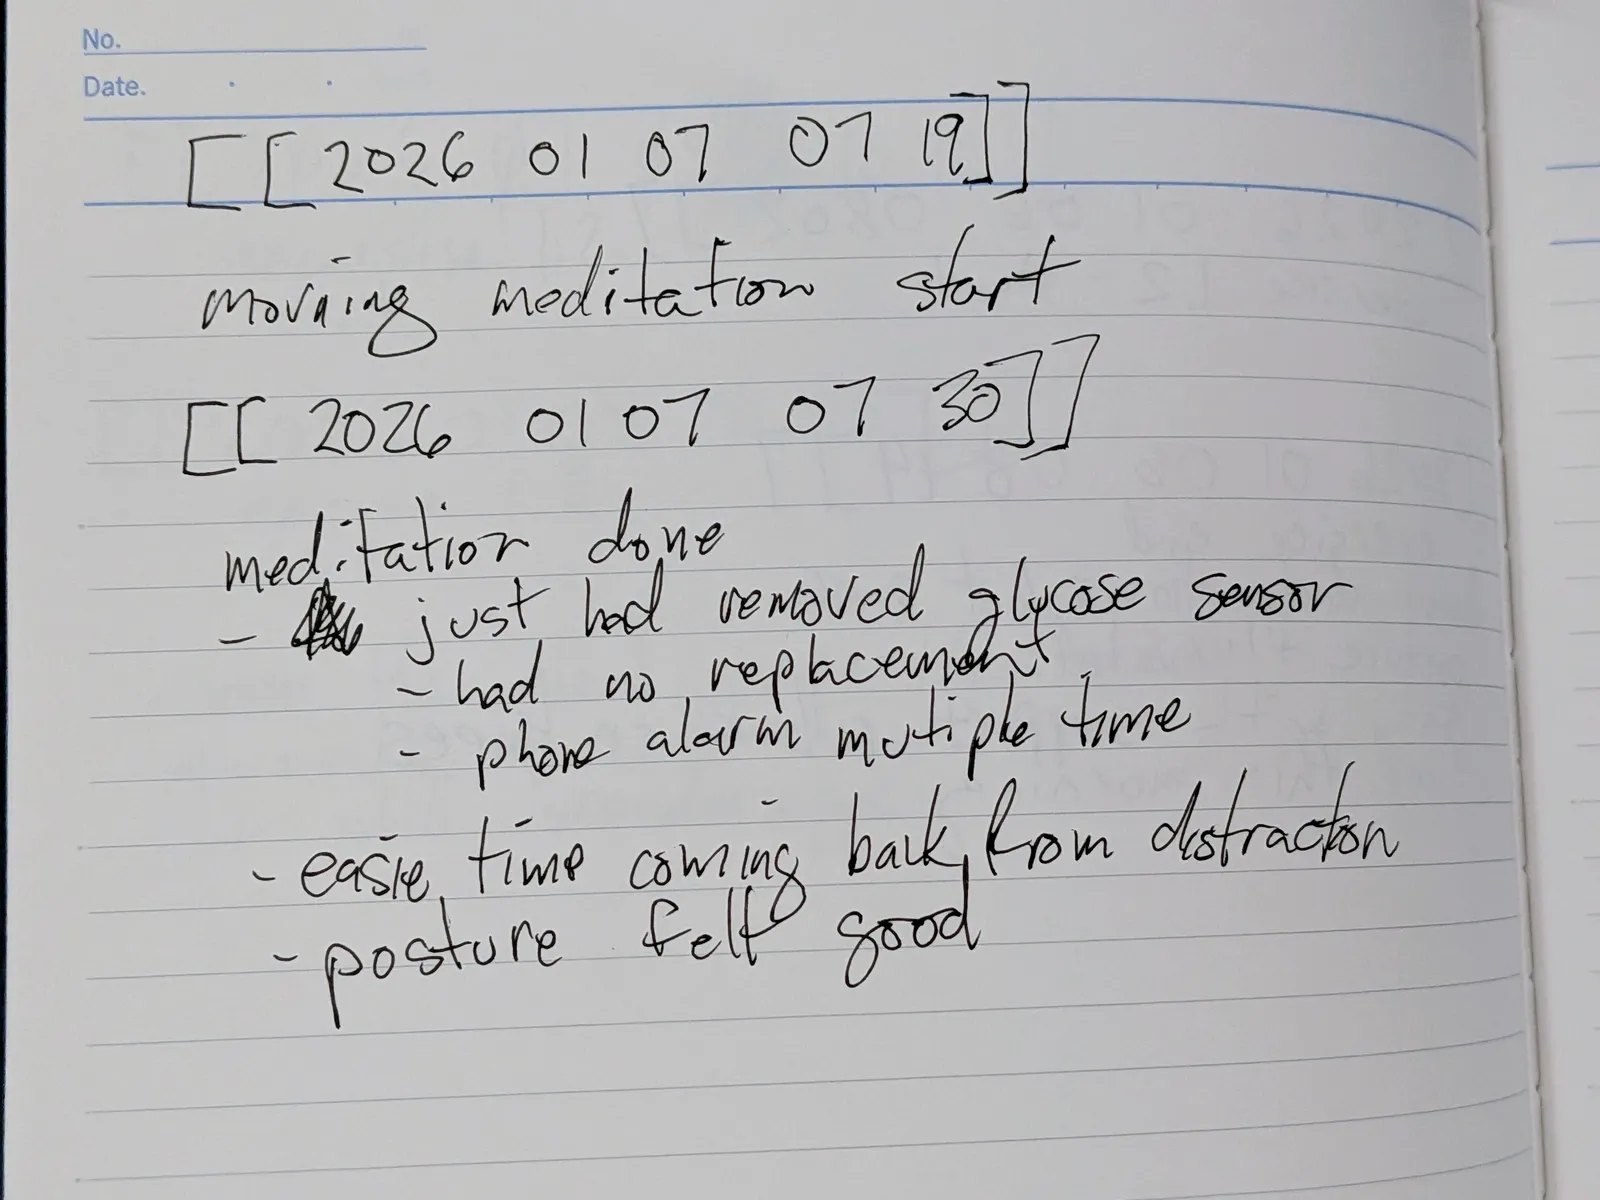 No.
Date.
[[2026 01 07 07 19]]
morning meditation start
[[2026 01 07 07 30]]
meditation done
- just had removed glycose sensor
- had no replacement
- phone alarm mutiple time
- easie time coming back from distraction
- posture felt good